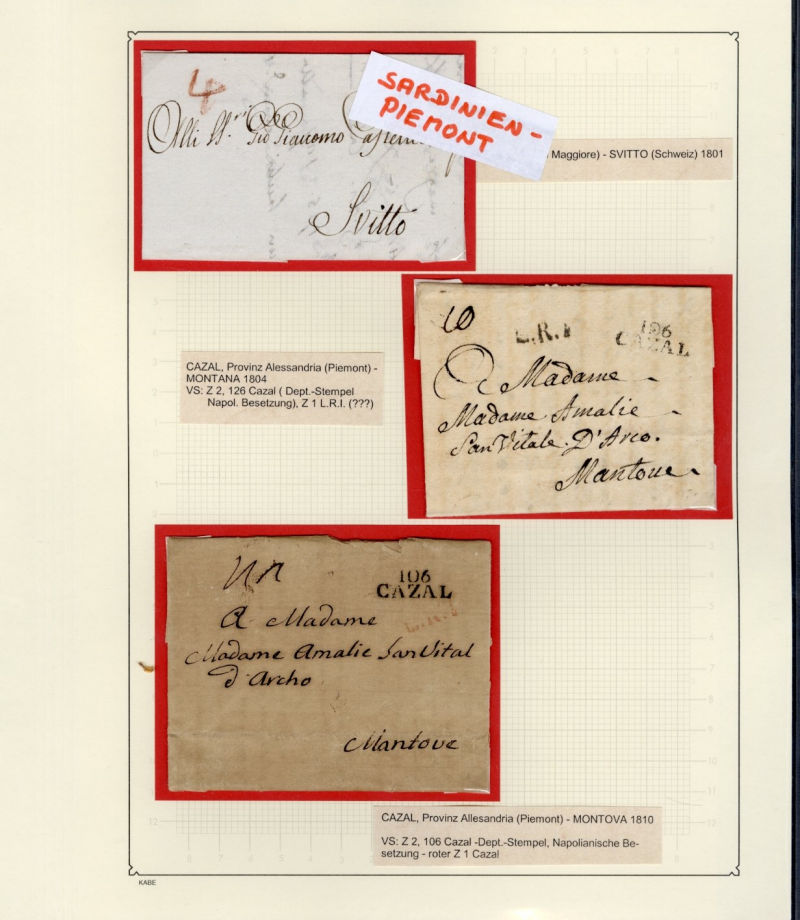 4
SARDINIEN-
PIEMONT
Alli Ss.ri Gio Giacomo
Svitto
Maggiore) - SVITTO (Schweiz) 1801
10
L.R.I
106
CAZAL
A Madame
Madame Amalie
San Vitale D'Arco.
Mantoue
CAZAL, Provinz Alessandria (Piemont) -
MONTANA 1804
VS: Z 2, 126 Cazal ( Dept.-Stempel
Napol. Besetzung), Z 1 L.R.I. (???)
106
CAZAL
L.R.I
A Madame
Madame Amalie San Vital
d'Archo
Mantove
CAZAL, Provinz Allesandria (Piemont) - MONTOVA 1810
VS: Z 2, 106 Cazal -Dept.-Stempel, Napolianische Be-
setzung - roter Z 1 Cazal
KABE